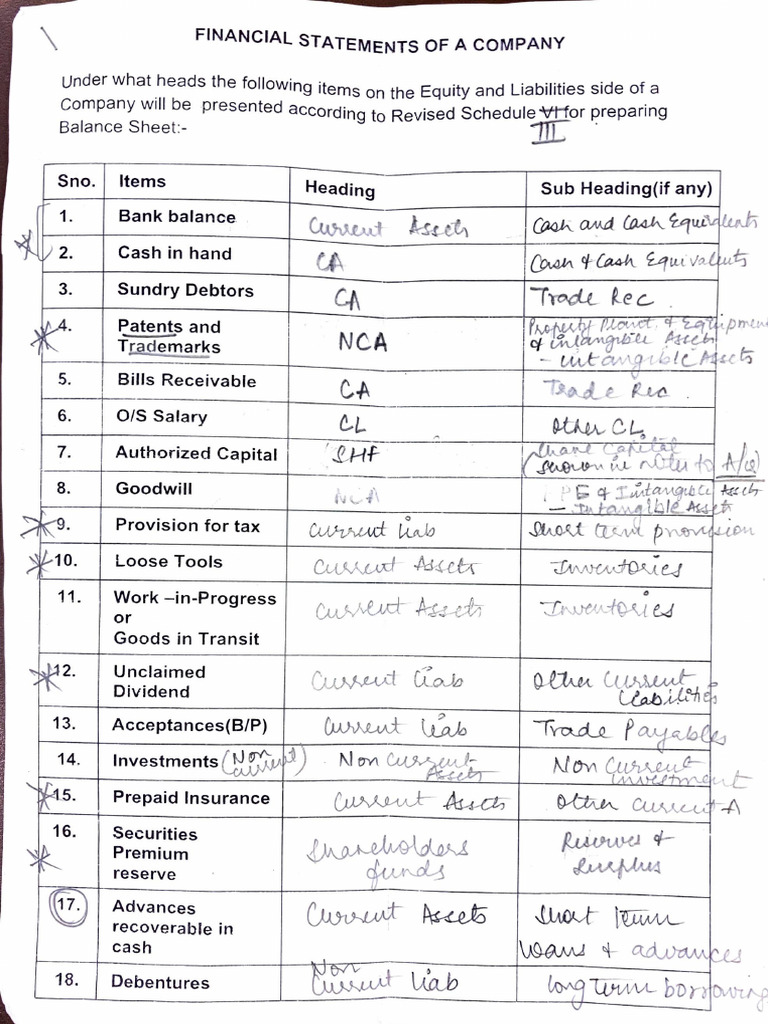 FINANCIAL STATEMENTS OF A COMPANY
Under what heads the following items on the Equity and Liabilities side of a
Company will be presented according to Revised Schedule VI for preparing
III
Balance Sheet:-
Sno. Items Heading Sub Heading(if any)
1. Bank balance Current Assets Cash and Cash Equivalents
2. Cash in hand CA Cash & Cash Equivalents
3. Sundry Debtors CA Trade Rec
4. Patents and Trademarks NCA Property Plant & Equipment
& intangible Assets
- intangible Assets
5. Bills Receivable CA Trade Rec
6. O/S Salary CL Other CL
7. Authorized Capital SHF Share Capital
(Shown in notes to A/c)
8. Goodwill NCA PPE & Intangible Assets
- Intangible Assets
9. Provision for tax Current liab Short term provision
10. Loose Tools Current Assets Inventories
11. Work –in-Progress Current Assets Inventories
or
Goods in Transit
12. Unclaimed Current liab Other Current
Dividend liabilities
13. Acceptances(B/P) Current liab Trade Payables
14. Investments (Non Current) Non Current Assets Non Current investment
15. Prepaid Insurance Current Assets Other Current A
16. Securities Shareholders Reserves &
Premium funds Surplus
reserve
17. Advances Current Assets Short term
recoverable in loans & advances
cash
18. Debentures Non Current liab long term borrowing